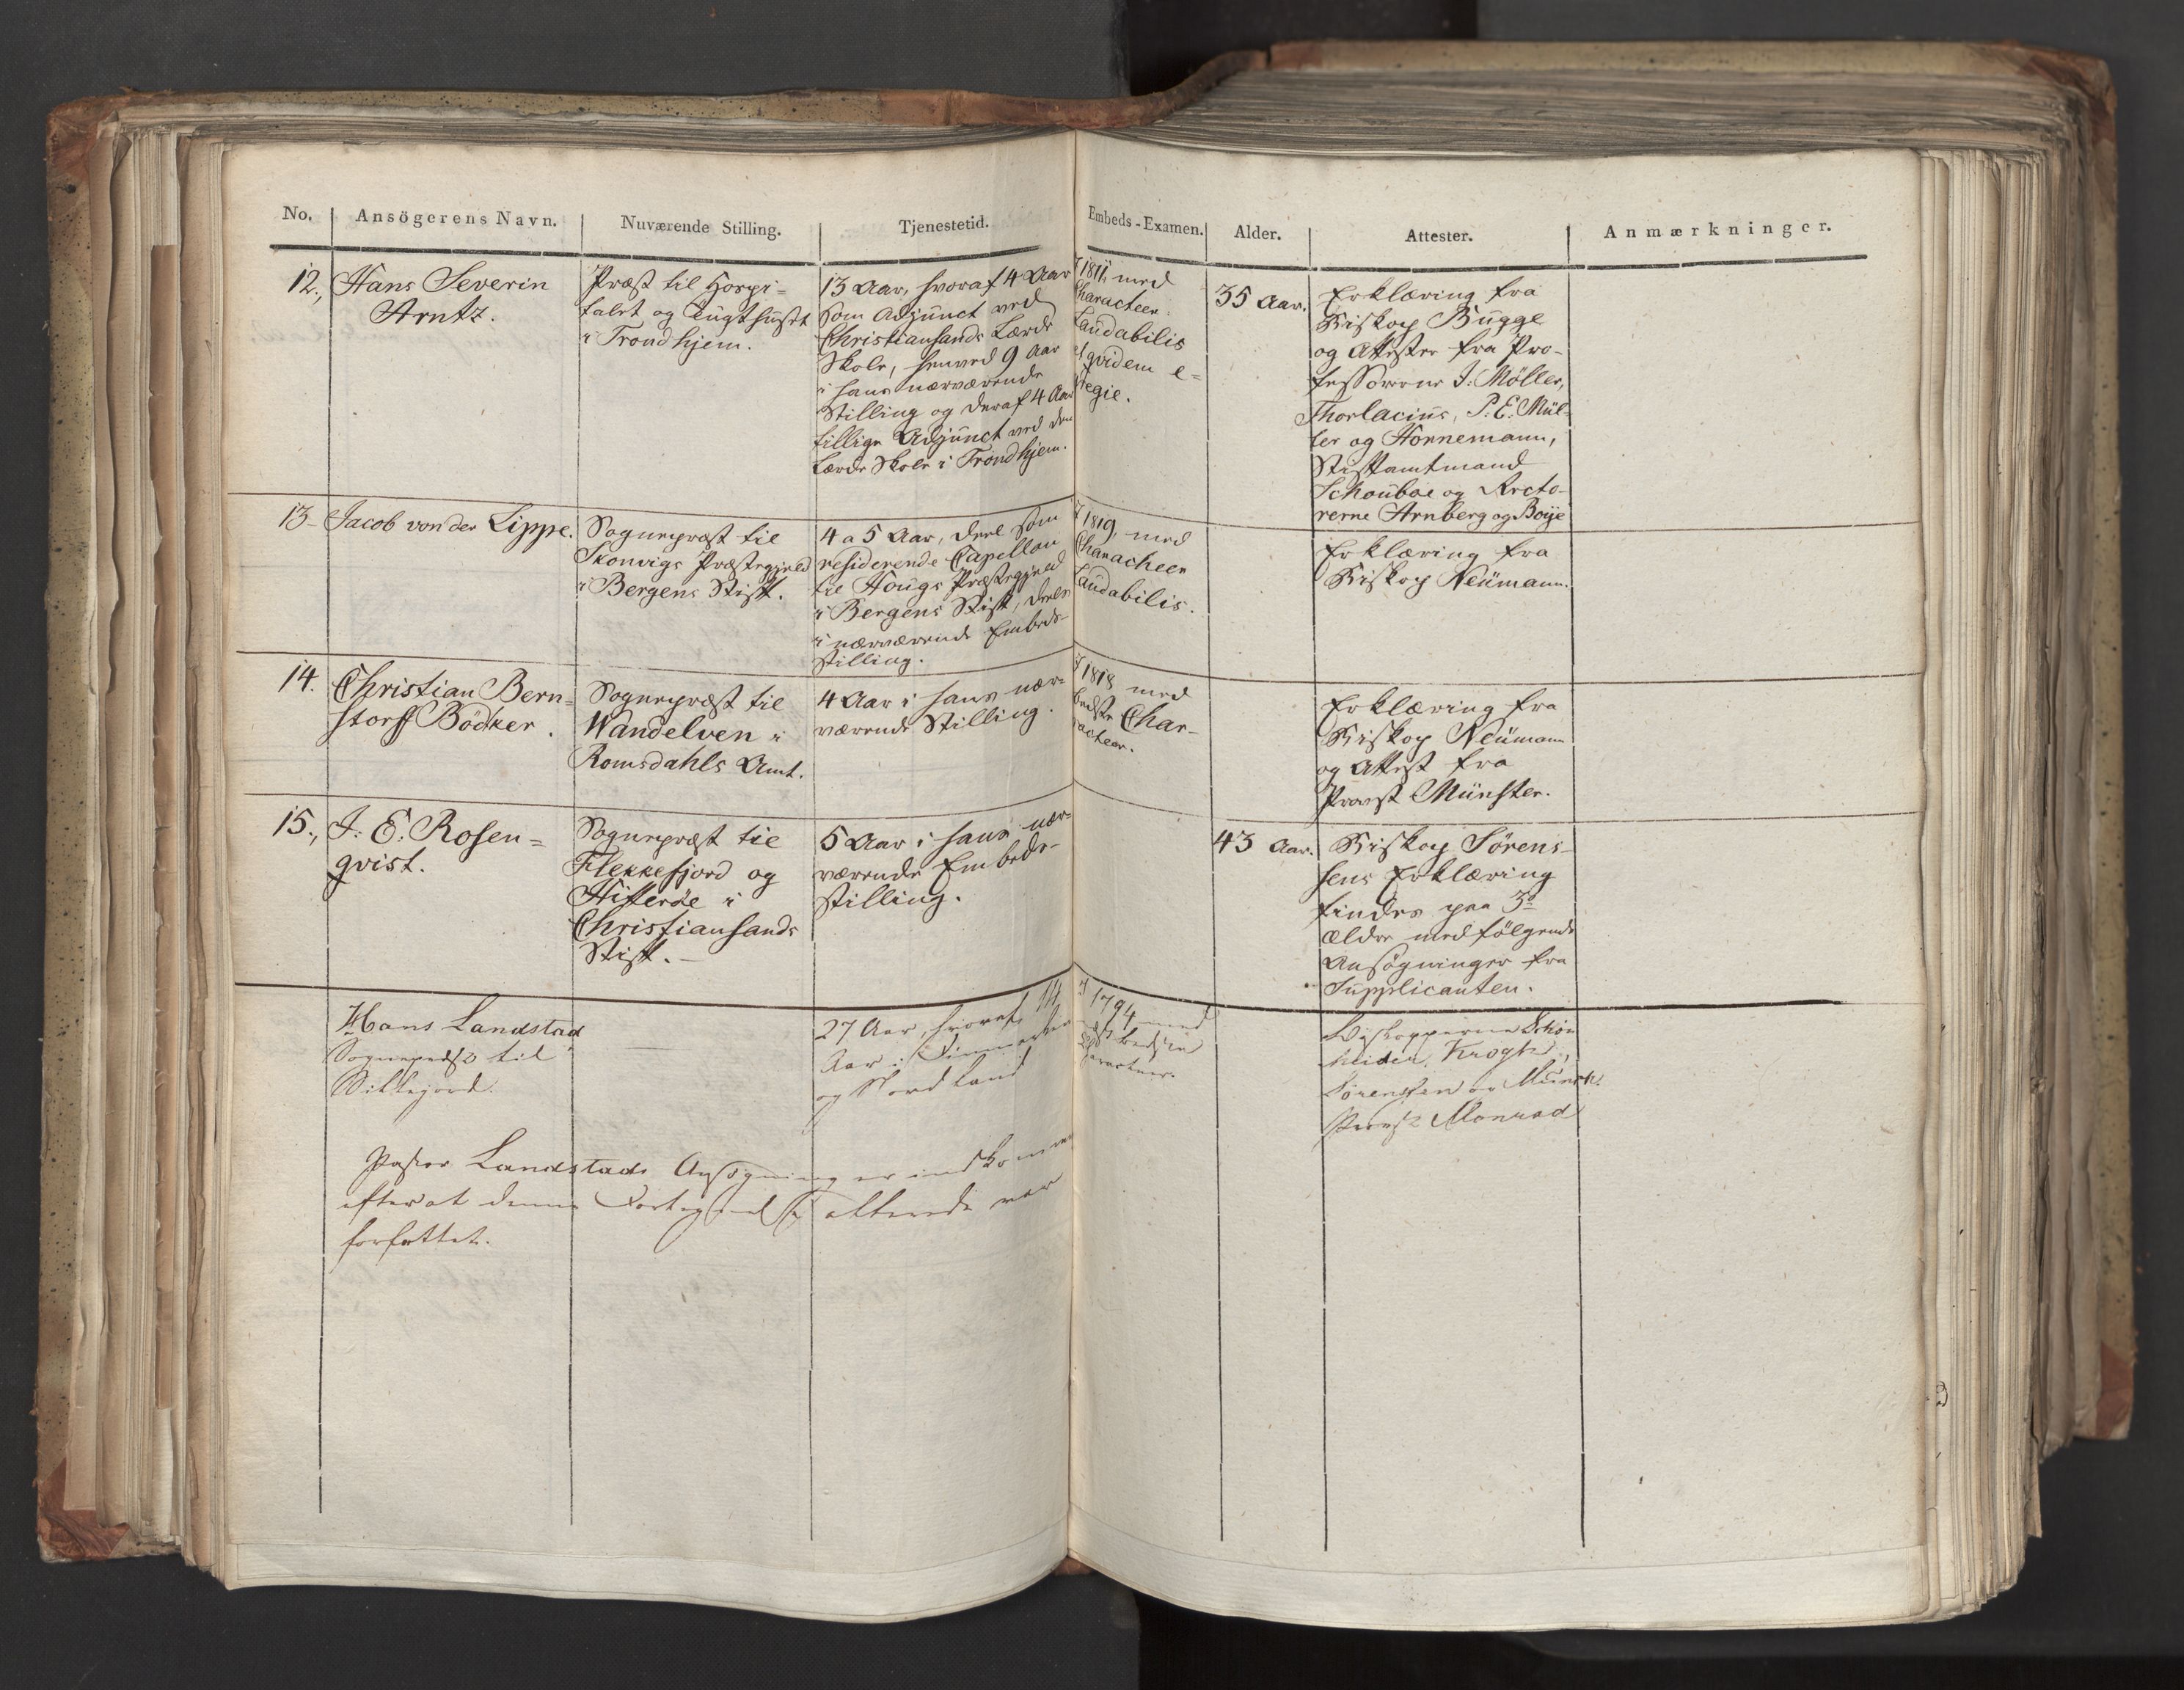 No. Ansögerens Navn. Nuværende Stilling. Tjenestetid. Embeds-Examen. Alder. Attester. Anmærkninger.
12., Hans Severin
Arntz.
Præst til Hospi-
talet og Tugthuset
i Trondhjem.
13 Aar, hvoraf 4 Aar
som Adjunct ved
Christiansands Lærde
Skole, henved 9 Aar
i hans nærværende
Stilling og deraf 4 Aar
tillige Adjunct ved den
Lærde Skole i Trondhjem.
I 1811, med
Characteer:
Laudabilis
et qvidem e-
gregie.
35 Aar.
Erklæring fra
Biskop Bugge
og Attester fra Pro-
fessorerne J: Möller,
Thorlacius, P: E: Mül-
ler og Hornemann,
Stiftamtmand
Schouboe og Recto-
rerne Arnberg og Boije
13- Jacob von der Lippe.
Sognepræst til
Skonvigs Præstegjeld
i Bergens Stift.
4 a 5 Aar, deel som
residerende Capellan
til Hougs Præstegjeld
i Bergens Stift, deels
i nærværende Embeds-
stilling.
I 1819, med
Characteer
Laudabilis.
Erklæring fra
Biskop Neümann.
14. Christian Bern-
storff Bödker.
Sognepræst til
Wandelven i
Romsdahls Amt.
4 Aar i hans nær-
værende Stilling.
I 1818 med
bedste Char-
acteer.
Erklæring fra
Biskop Neümann
og Attest fra
Provst Münster.
15., J: E: Rosen-
qvist.
Sognepræst til
Flekkefjord og
Hitteröe i
Christiansands
Stift.-
5 Aar i hans nær-
værende Embeds-
stilling.
43 Aar.
Biskop Sørens-
sens Erklæring
findes paa 3de
ældre medfölgende
Ansögninger fra
Supplicanten.
Hans Landstad
Sognepræst til
Sillejord.
27 Aar, hvoraf 14
Aar i Finmarken
og Nordland
I 1794 med
bedste
Character.
Biskopperne Schön
heider, Krogh,
Sörensen og Münch.
Provst Monrad
Pastor Landstads Ansögning er indkommen
efter at denne Fortegnelse allerede var
forfattet.